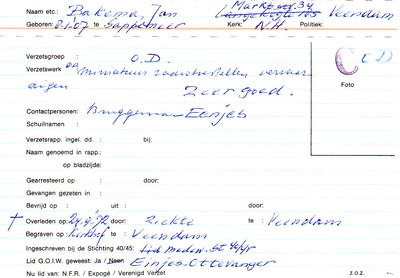 Marktstr. 34
Naam etc.: Bakema, Jan Langeleegte 105 Veendam
Geboren: 0.1.07 te Sappemeer Kerk: N.H. Politiek:
Verzetsgroep : O.D.
Verzetswerk oa miniatuur radiotoestellen vervaar
digen Zeer goed.
C O D
Foto
Contactpersonen: Bruggeman Eenjes
Schuilnamen :
Verzetsrapp. ingel. dd. : bij:
Naam genoemd in rapp.:
op bladzijde:
Gearresteerd op : door:
Gevangen gezeten in :
Bevrijd op : uit : door:
† Overleden op: 24.9.72 door: Ziekte te : Veendam
Begraven op : Kerkhof te : Veendam
Ingeschreven bij de Stichting 40/45: Lid medew. St 40/45
Lid G.O.I.W. geweest: Ja / Neen Einjes-Ottevanger
Nu lid van: N.F.R. / Expogé / Verenigd Verzet z.o.z.